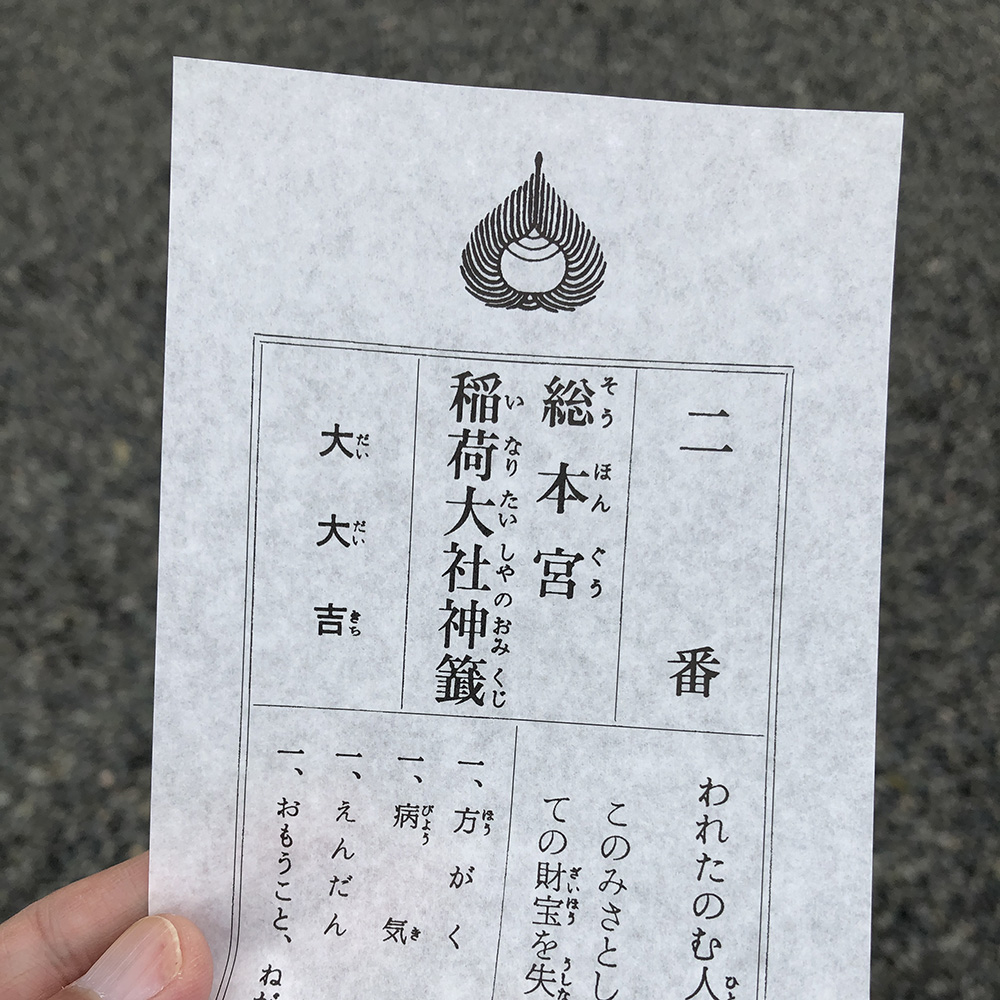 二番
総本宮
稲荷大社神籤
大大吉
われたのむ人
このみさとし
ての財宝を失
一、方がく
一、病気
一、えんだん
一、おもうこと、ね